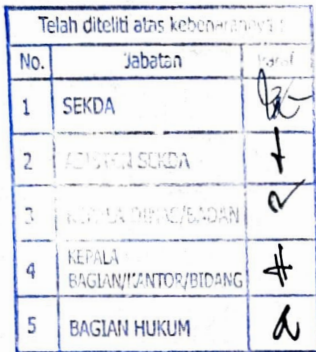 Telah diteliti atas kebenarannya :
No. Jabatan Paraf
1 SEKDA
2 ASISTEN SEKDA
3 KEPALA DINAS/BADAN
4 KEPALA
BAGIAN/KANTOR/BIDANG
5 BAGIAN HUKUM